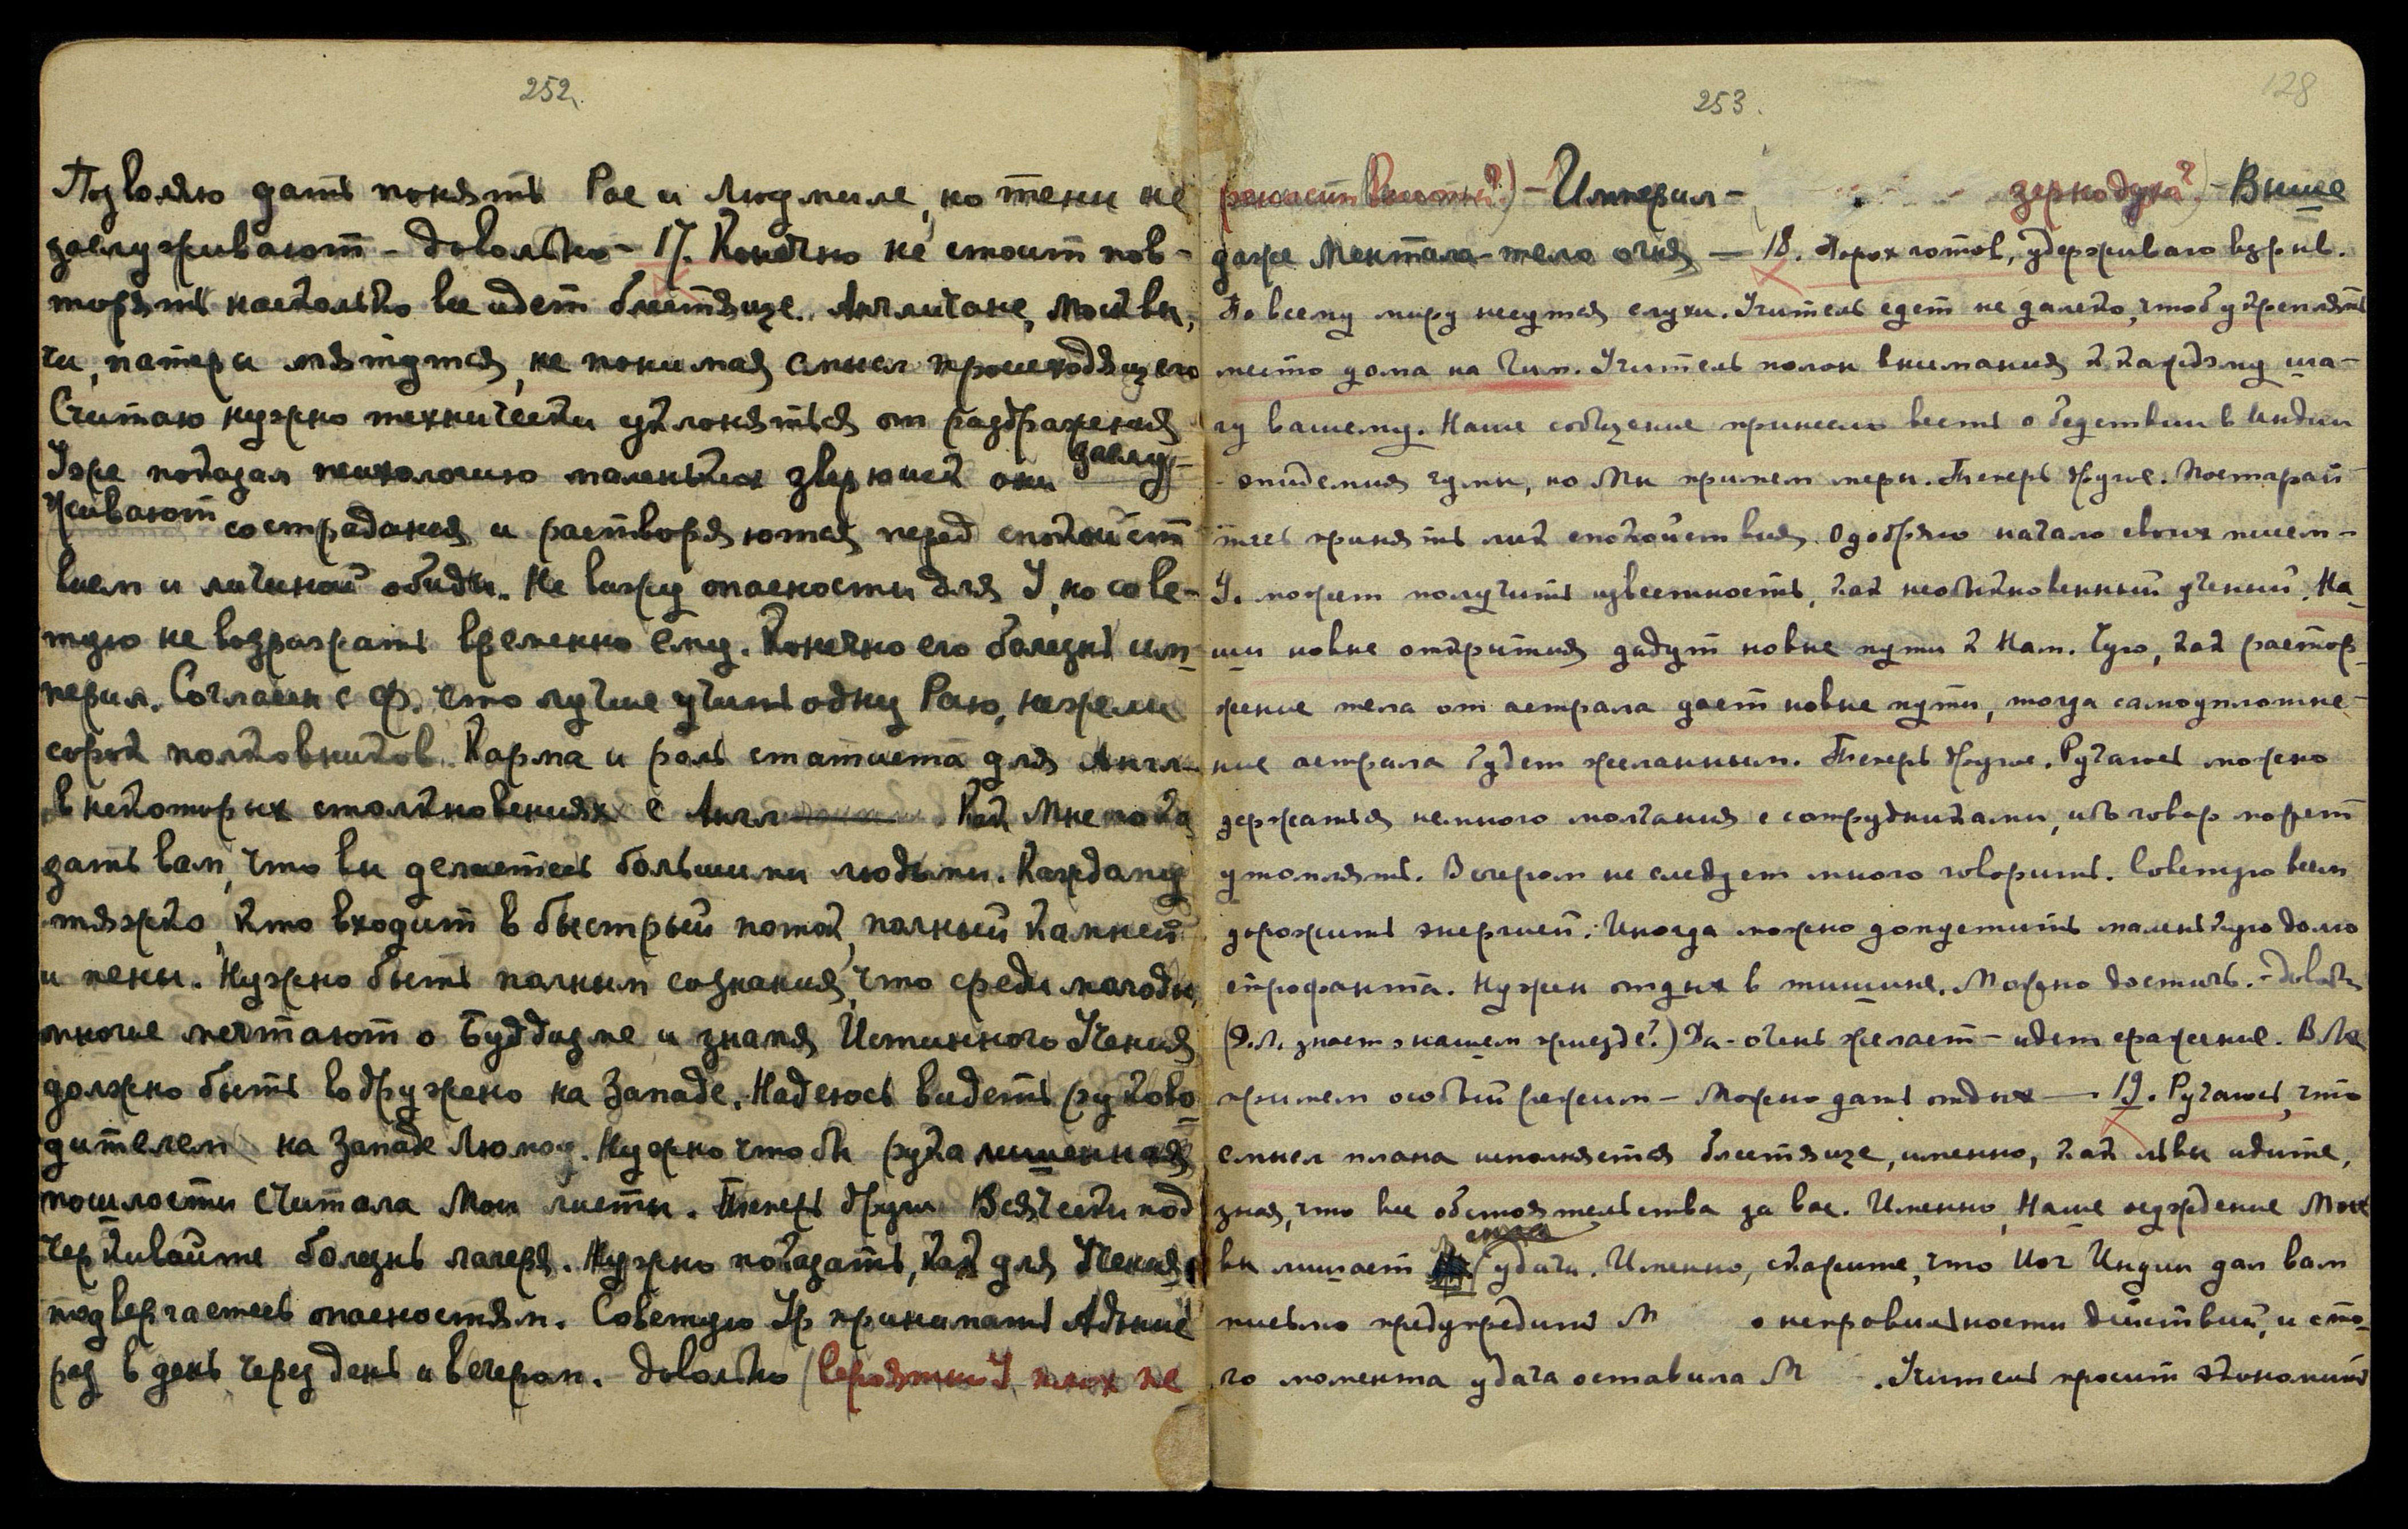 252
Позволяю дать понять Рае и Людмиле, но тени не
заслуживают – довольно – 17. Конечно не стоит пов-
торять насколько все идет блестяще. Англичане, москви-
чи, патеры мятутся, не понимая смысл происходящего
Считаю нужно технически уклоняться от раздражения
Уже показал психологию маленьких зверюшек они заслу-
живают сострадания и растворяются перед спокойст
вием и личиной обиды. Не вижу опасности для У, но сове-
тую не возражать временно ему. Конечно его болезнь им-
перил. Согласен с Ф. что лучше учить одну Раю, нежели
сорок полковников. Карма и роль статиста для Англ
в некоторых столкновениях с Англ Как Мне пока
зать вам, что вы делаетесь большими людьми. Каждому
тяжко, кто входит в быстрый поток, полный камней
и пены. Нужно быть полным сознания, что среди молоды
многие мечтают о Буддизме и знамя Истинного Учения
должно быть водружено на Западе. Надеюсь видеть руково
дителем на Западе Люмоу. Нужно чтобы рука лишенная
пошлости считала Мои листы. Теперь другое Всячески под
черкивайте болезнь лагеря. Нужно показать, как для Учения
подвергаетесь опасностям. Советую Ур принимать Адкие
раз в день через день и вечером. Довольно (вероятно У. плох не
253. 128
– Империл – зернодуха?) – Выше
даже Ментала – тело огня — 18. Порох готов, удерживаю взрыв.
По всему миру несутся слухи. Учитель едет не далеко, чтоб укреплять
место дома на Чим. Учитель полон внимания к каждому ша-
гу вашему. Наше сообщение принесло весть о бедствии в Индии
– эпидемия чумы, но Мы примем меры. Теперь другое. Постарай
тесь принять лик спокойствия. Одобряю начало своих писем –
У. может получить известность, как необыкновенный ученый. На-
ши новые открытия дадут новые пути к Нам. Чую, как растор-
жение тела от астрала дает новые пути, тогда самоуплотне-
ние астрала будет желанным. Теперь другое. Ручаюсь можно
держаться немного молчания с сотрудниками, ибо говор может
утомлять. Вечером не следует много говорить. Советую всем
дорожить энергией. Иногда можно допустить маленькую долю
строфанта. Нужен отдых в тишине. Можно достичь. – Довольн
(Д.Л. знает о нашем приезде?) Да – очень желает – идет сражение. В Ла
примем особый режим – Можно дать отдых — 19. Ручаюсь, что
смысл плана исполняется блестяще, именно, как львы идите,
зная, что все обстоятельства за вас. Именно, Наше осуждение Моск
вы лишает удачи. Именно, скажите, что Йог Индии дал вам
письмо предупредить М о неправильности действий, и с то-
го момента удача оставила М . Учитель просит экономить